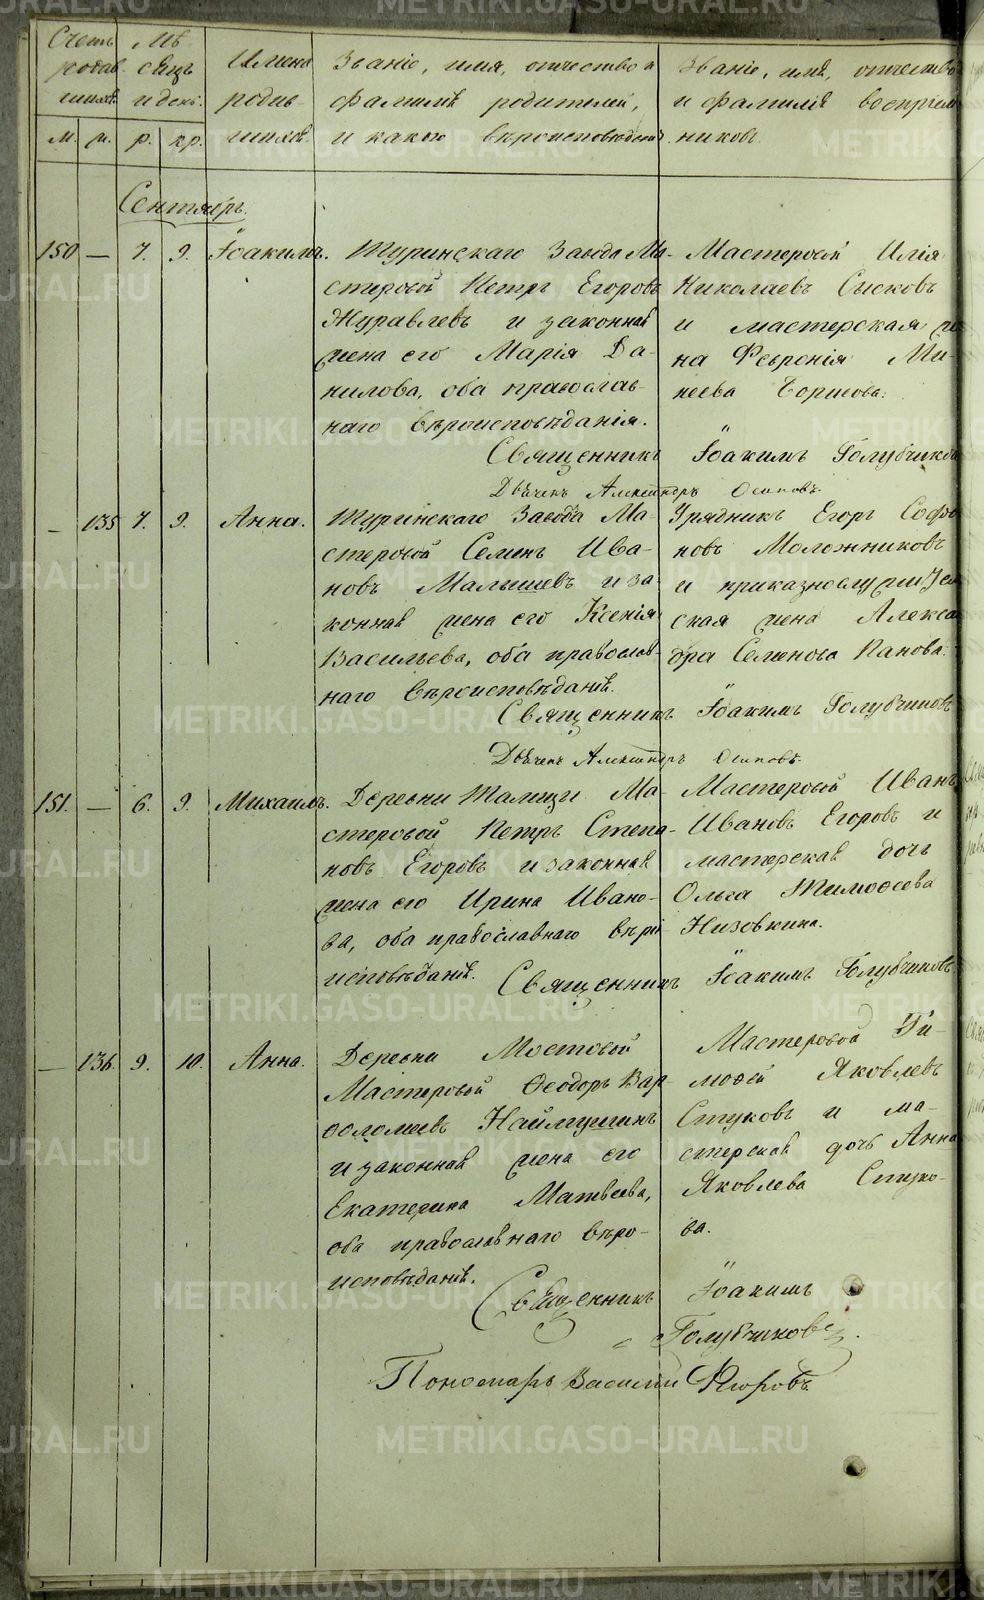 Счетъ родив. шихся.
Мѣсяцъ и день.
Имена родившихся.
Званіе, имя, отчество и
фамилія родителей,
и какого вѣроисповѣданія
Званіе, имя, отчество
и фамилія воспріем
никовъ.
м. ж. р. кр.
Сентябрь.
150 — 7. 9. Іоакимъ.
Туринскаго Завода Ма-
стеровой Петръ Егоровъ
Журавлевъ и законная
жена его Марія Да-
нилова, оба православ-
наго вѣроисповѣданія.
Мастеровой Илія
Николаевъ Сысковъ
и мастерская же
на Февронія Ми-
неева Борисова.
Священникъ Іоакимъ Голубчиковъ
Дьячекъ Александръ Осиповъ.
— 135 7. 9. Анна.
Туринскаго Завода Ма-
стеровой Семенъ Ива-
новъ Малышевъ и за-
конная жена его Ксенія
Васильева, оба православ-
наго вѣроисповѣданія.
Урядникъ Егоръ Софо
новъ Моложниковъ
и приказнослужитель
ская жена Алекса
дра Семенова Панова.
Священникъ Іоакимъ Голубчиковъ
Дьячекъ Александръ Осиповъ.
151. — 6. 9. Михаилъ.
Деревни Талицы Ма-
стеровой Петръ Степа-
новъ Егоровъ и законная
жена его Ирина Ивано-
ва, оба православнаго вѣро
исповѣданія.
Мастеровой Иванъ
Ивановъ Егоровъ и
мастерская дочь
Ольга Тимоѳеева
Низовкина.
Священникъ Іоакимъ Голубчиковъ
— 136. 9. 10. Анна.
Деревни Мостовой
Мастеровой Ѳеодоръ Вар-
ѳоломеевъ Наймушинъ
и законная жена его
Екатерина Матвеева,
оба православнаго вѣро-
исповѣданія.
Мастеровой Ти-
моѳей Яковлевъ
Стуковъ и ма-
стерская дочь Анна
Яковлева Стуко-
ва.
Священникъ Іоакимъ
Голубчиковъ.
Пономарь Василій Флоровъ
METRIKI.GASO-URAL.RU